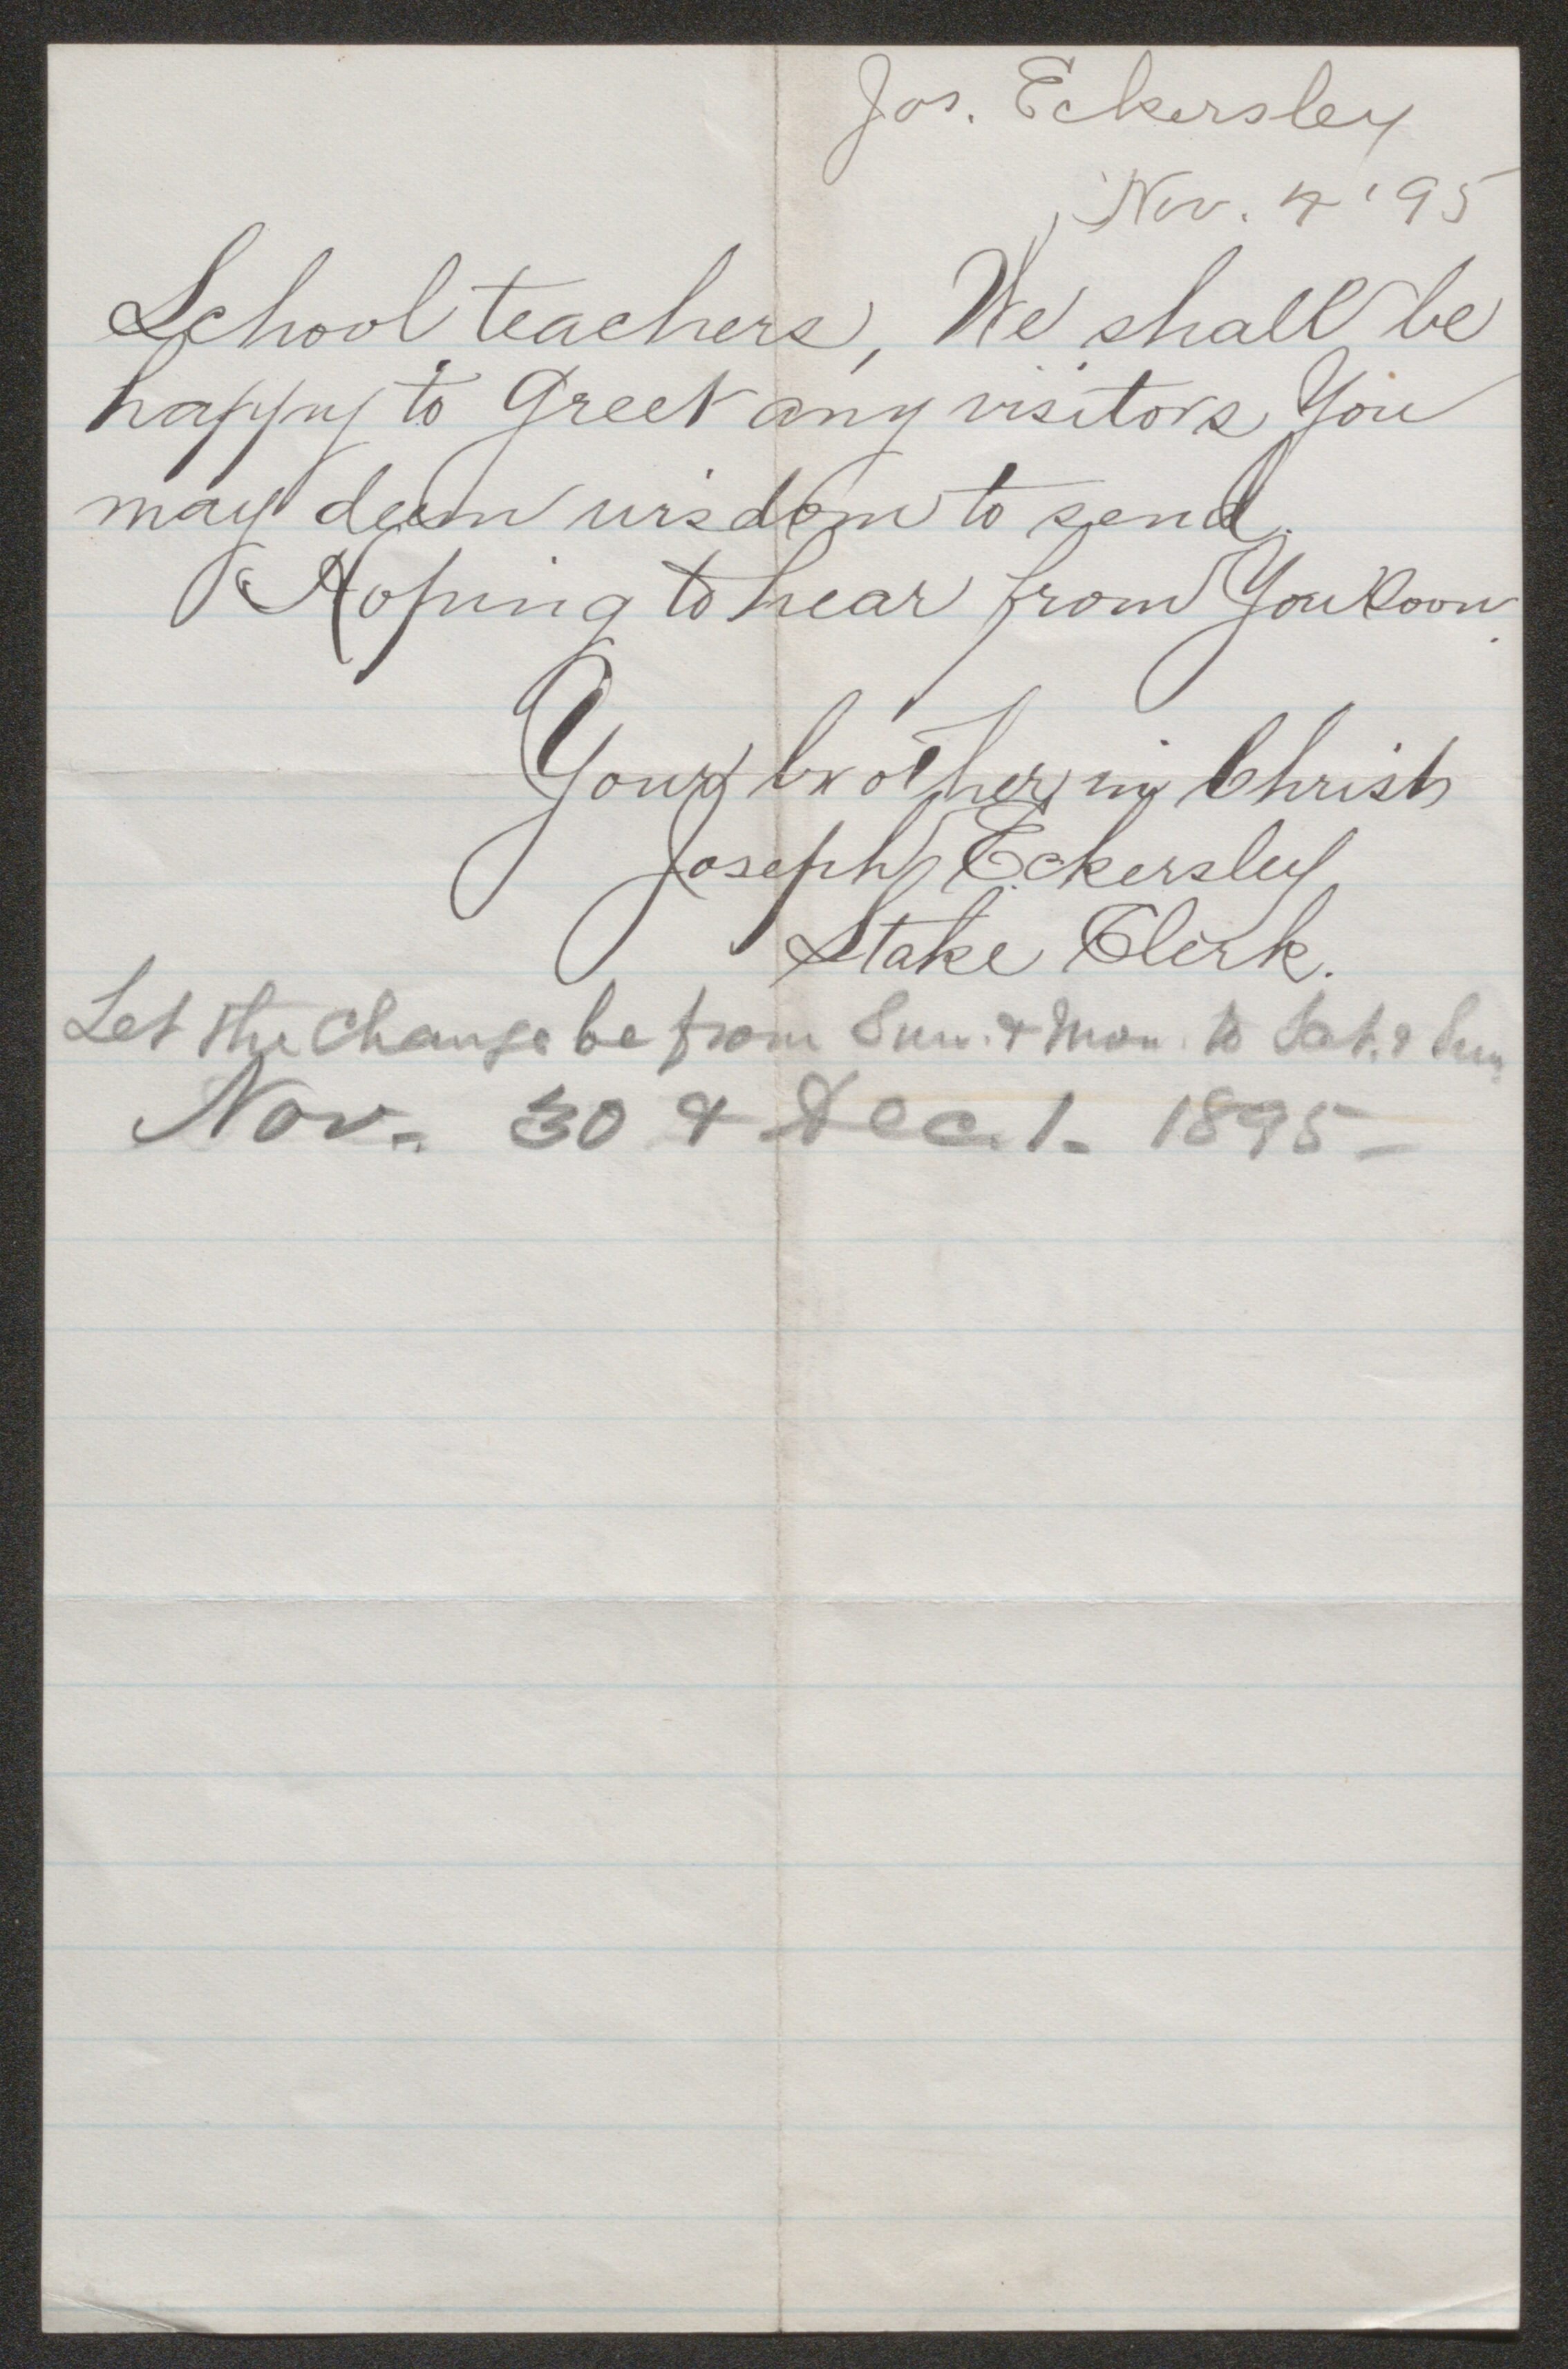 Jos. Eckersley
Nov. 4 '95
School teachers, We shall be
happy to Greet any visitors You
may deem wisdom to send.
Hoping to hear from You soon.
Your brother in Christ
Joseph Eckersley
Stake Clerk.
Let the change be from Sun. & Mon. to Sat. & Sun
Nov. 30 & Dec. 1. 1895-